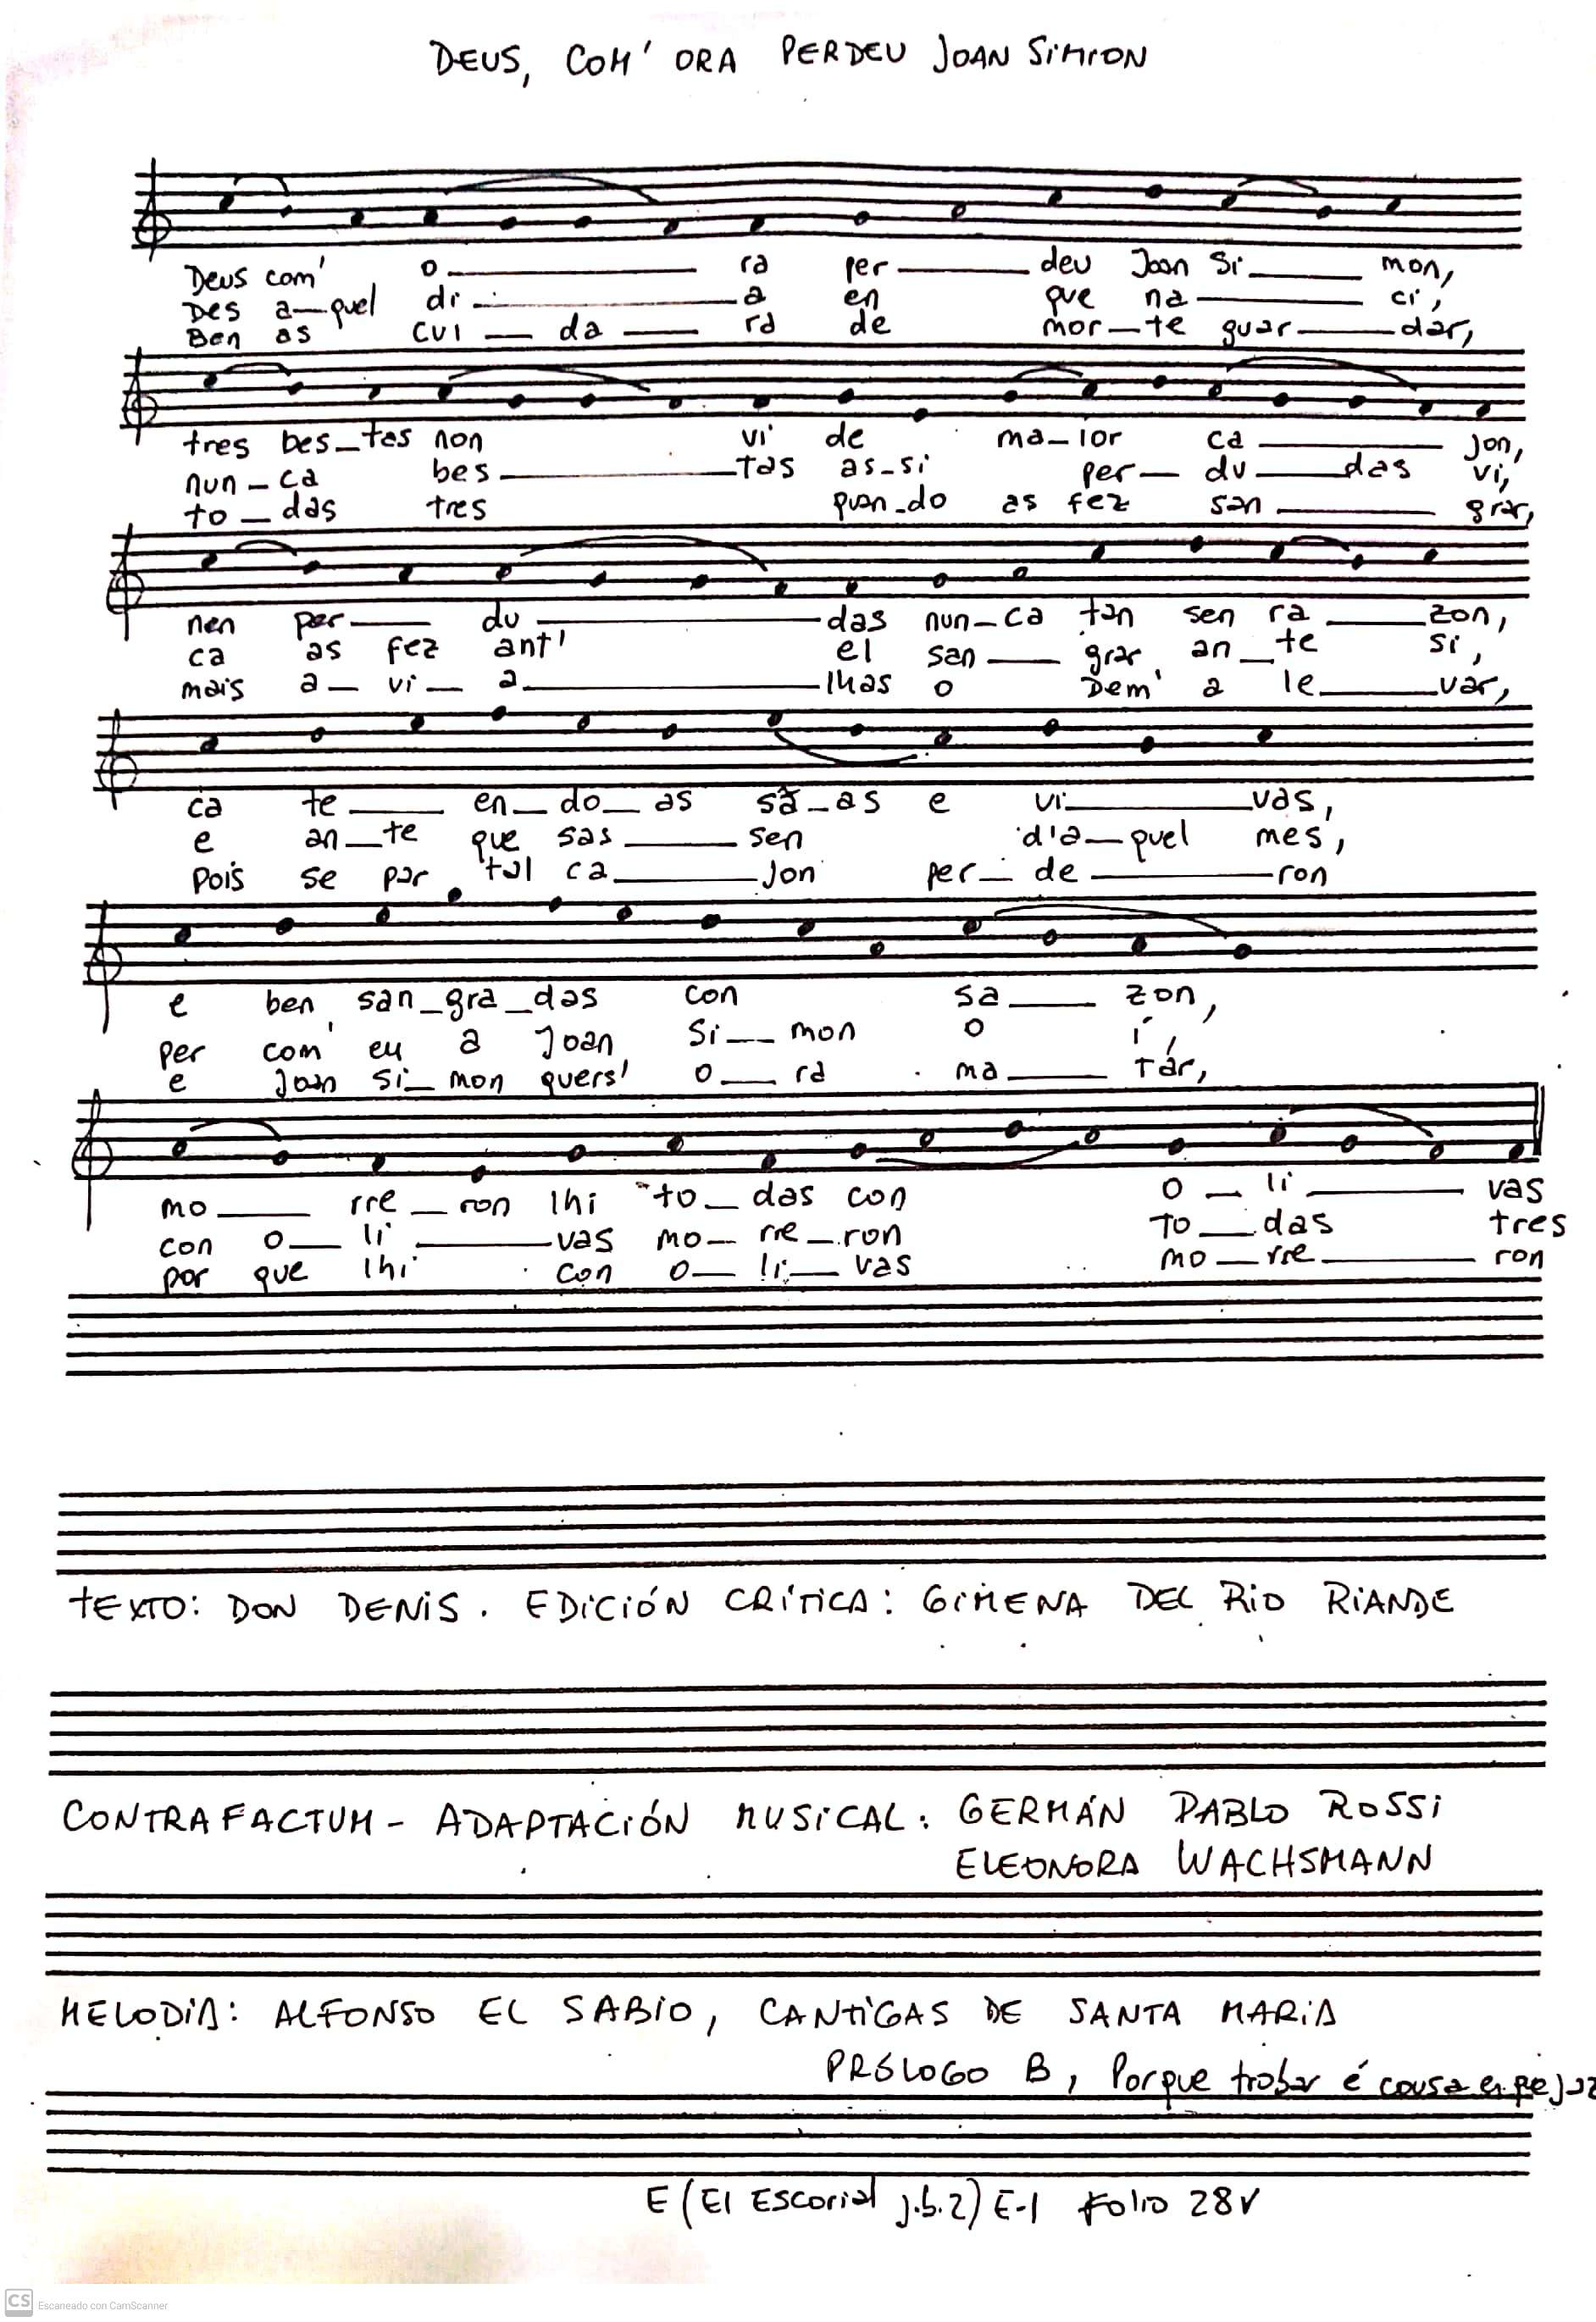 DEUS, COM' ORA PERDEU JOAN SIMION
Deus com' o ra per deu Joan Si mon,
Des a-quel di a en que na ci,
Ben as cui da ra de mor-te guar dar,
tres bes-tas non vi de ma-ior ca jon,
nun-ca bes tas as-si per-du das vi,
to-das tres quan-do as fez san grar,
nen per du das nun-ca tan sen ra zon,
ca as fez ant' el san grar an-te si,
mais a-vi-a lhas o Dem' a le var,
ca te en-do-as sã-as e vi vas,
e an-te que sas sen d'a-quel mes,
pois se por tal ca jon per-de ron
e ben san-gra-das con sa zon,
per com' eu a Joan Si-mon o í,
e Joan Si-mon quers' o-ra ma tar,
mo rre-ron lhi to-das con o-li vas
con o-li vas mo-rre-ron to-das tres
por que lhi con o-li-vas mo-rre ron
TEXTO: DON DENIS. EDICIÓN CRÍTICA: GIMENA DEL RIO RIANDE
CONTRAFACTUM- ADAPTACIÓN MUSICAL: GERMÁN PABLO ROSSI
ELEONORA WACHSMANN
MELODIA: ALFONSO EL SABIO, CANTIGAS DE SANTA MARIA
PRÓLOGO B, Porque trobar é cousa en que jaz
E (El Escorial j.b.2) E-1 Folio 28v
CS Escaneado con CamScanner